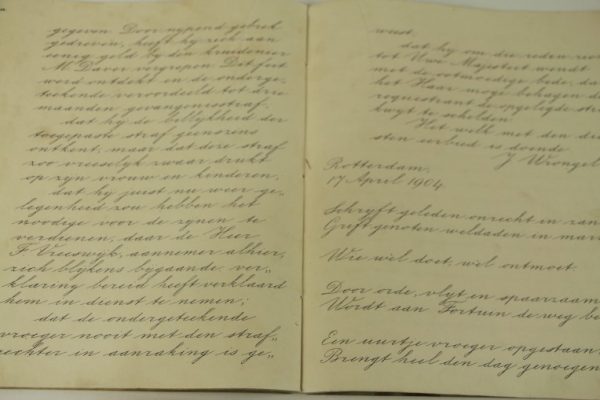 gegeven. Door nypend gebrek
gedreven, heeft hy zich aan
eenig geld by den kruidenier
M. Davor vergrepen. Dit feit
werd ontdekt en de onderge-
teekende veroordeeld tot drie
maanden gevangenisstraf.
dat hy de billykheid der
toegepaste straf geenszins
ontkent, maar dat deze straf
zoo vreeselyk zwaar drukt
op zyn vrouw en kinderen.
dat hy juist nu weer ge-
legenheid zou hebben het
noodige voor de zynen te
verdienen, daar de Heer
F. Vreeswyk, aannemer alhier,
zich blykens bygaande ver„
klaring bereid heeft verklaard
hem in dienst te nemen;
dat de ondergeteekende
vroeger nooit met den straf„
rechter in aanraking is ge„
weest.
dat hy om die reden
tot Uwe Majesteit wendt
met de ootmoedige bede, da
het Haar moge behagen de
requestrant de opgelegde stra
kwyt te schelden.
Het welk met den die
sten eerbied is doende
J Wrongel
Rotterdam,
17 April 1904.
Schryft geleden onrecht in zan
Grift genoten weldaden in mar
Wie wel doet, wel ontmoet.
Door orde, vlyt en spaarzaam
Wordt aan Fortuin de weg be
Een uurtje vroeger opgestaan
Brengt heel den dag genoegen